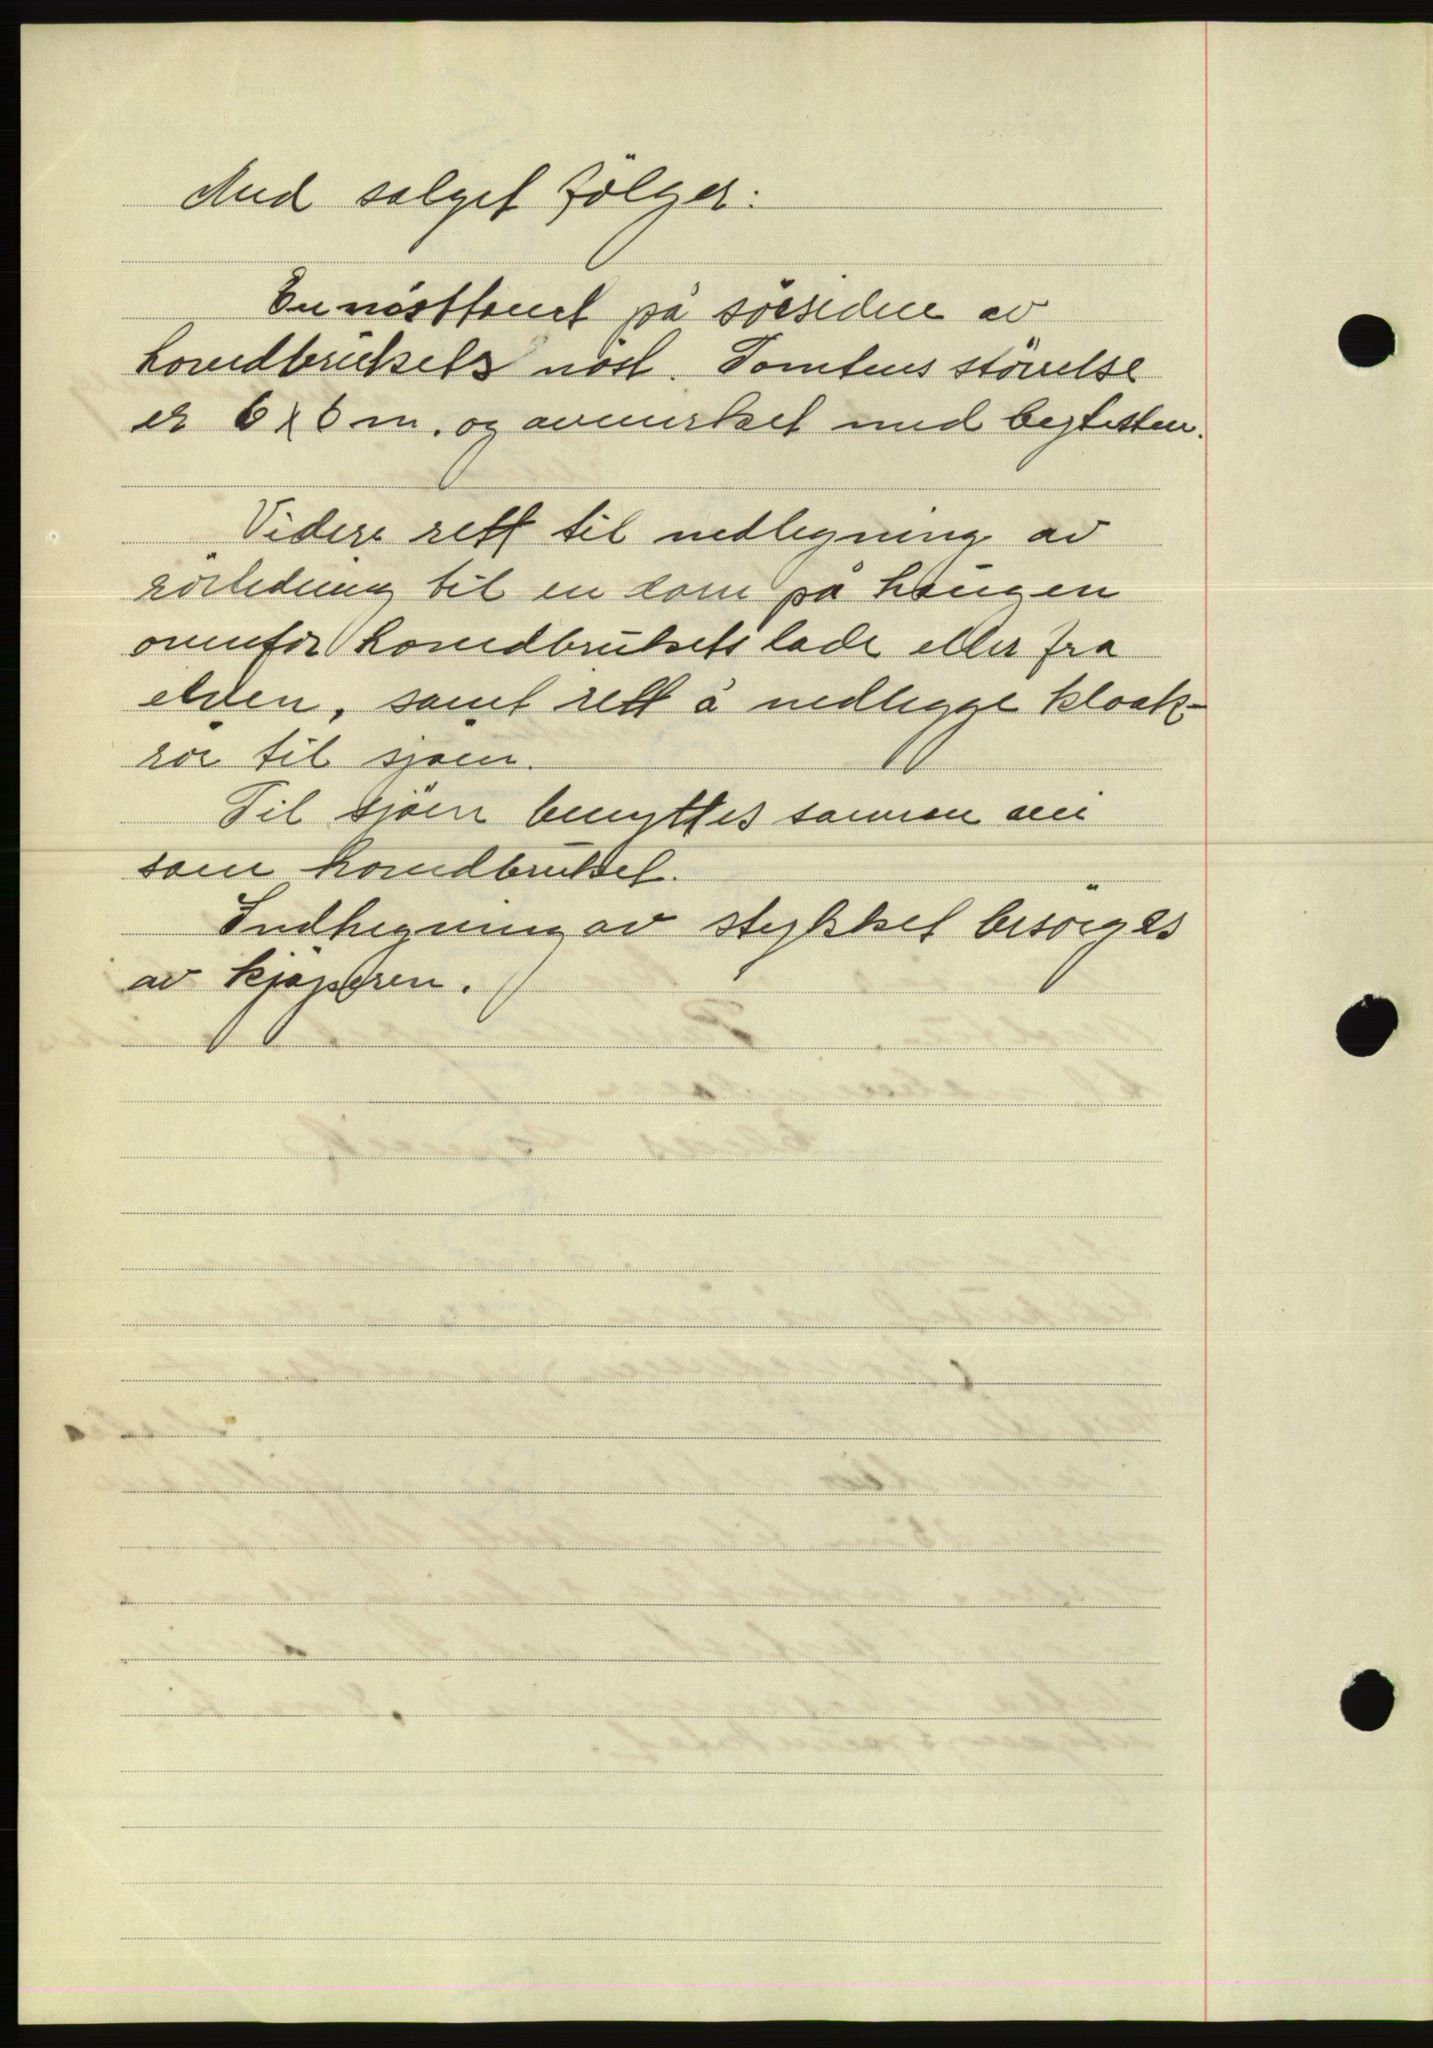 Med salget följer:
En nösttomt på sörsiden av
hovedbrukets nöst. Tomtens störrelse
er 6 x 6 m. og avmerket med bytesten.
Videre rett til nedlegning av
rörledning til en dam på haugen
ovenfor hovedbrukets lade eller fra
elven, samt rett å nedlegge kloak-
rör til sjöen.
Til sjöen benyttes samme vei
som hovedbruket.
Indhegning av stykket besörges
av kjöperen.